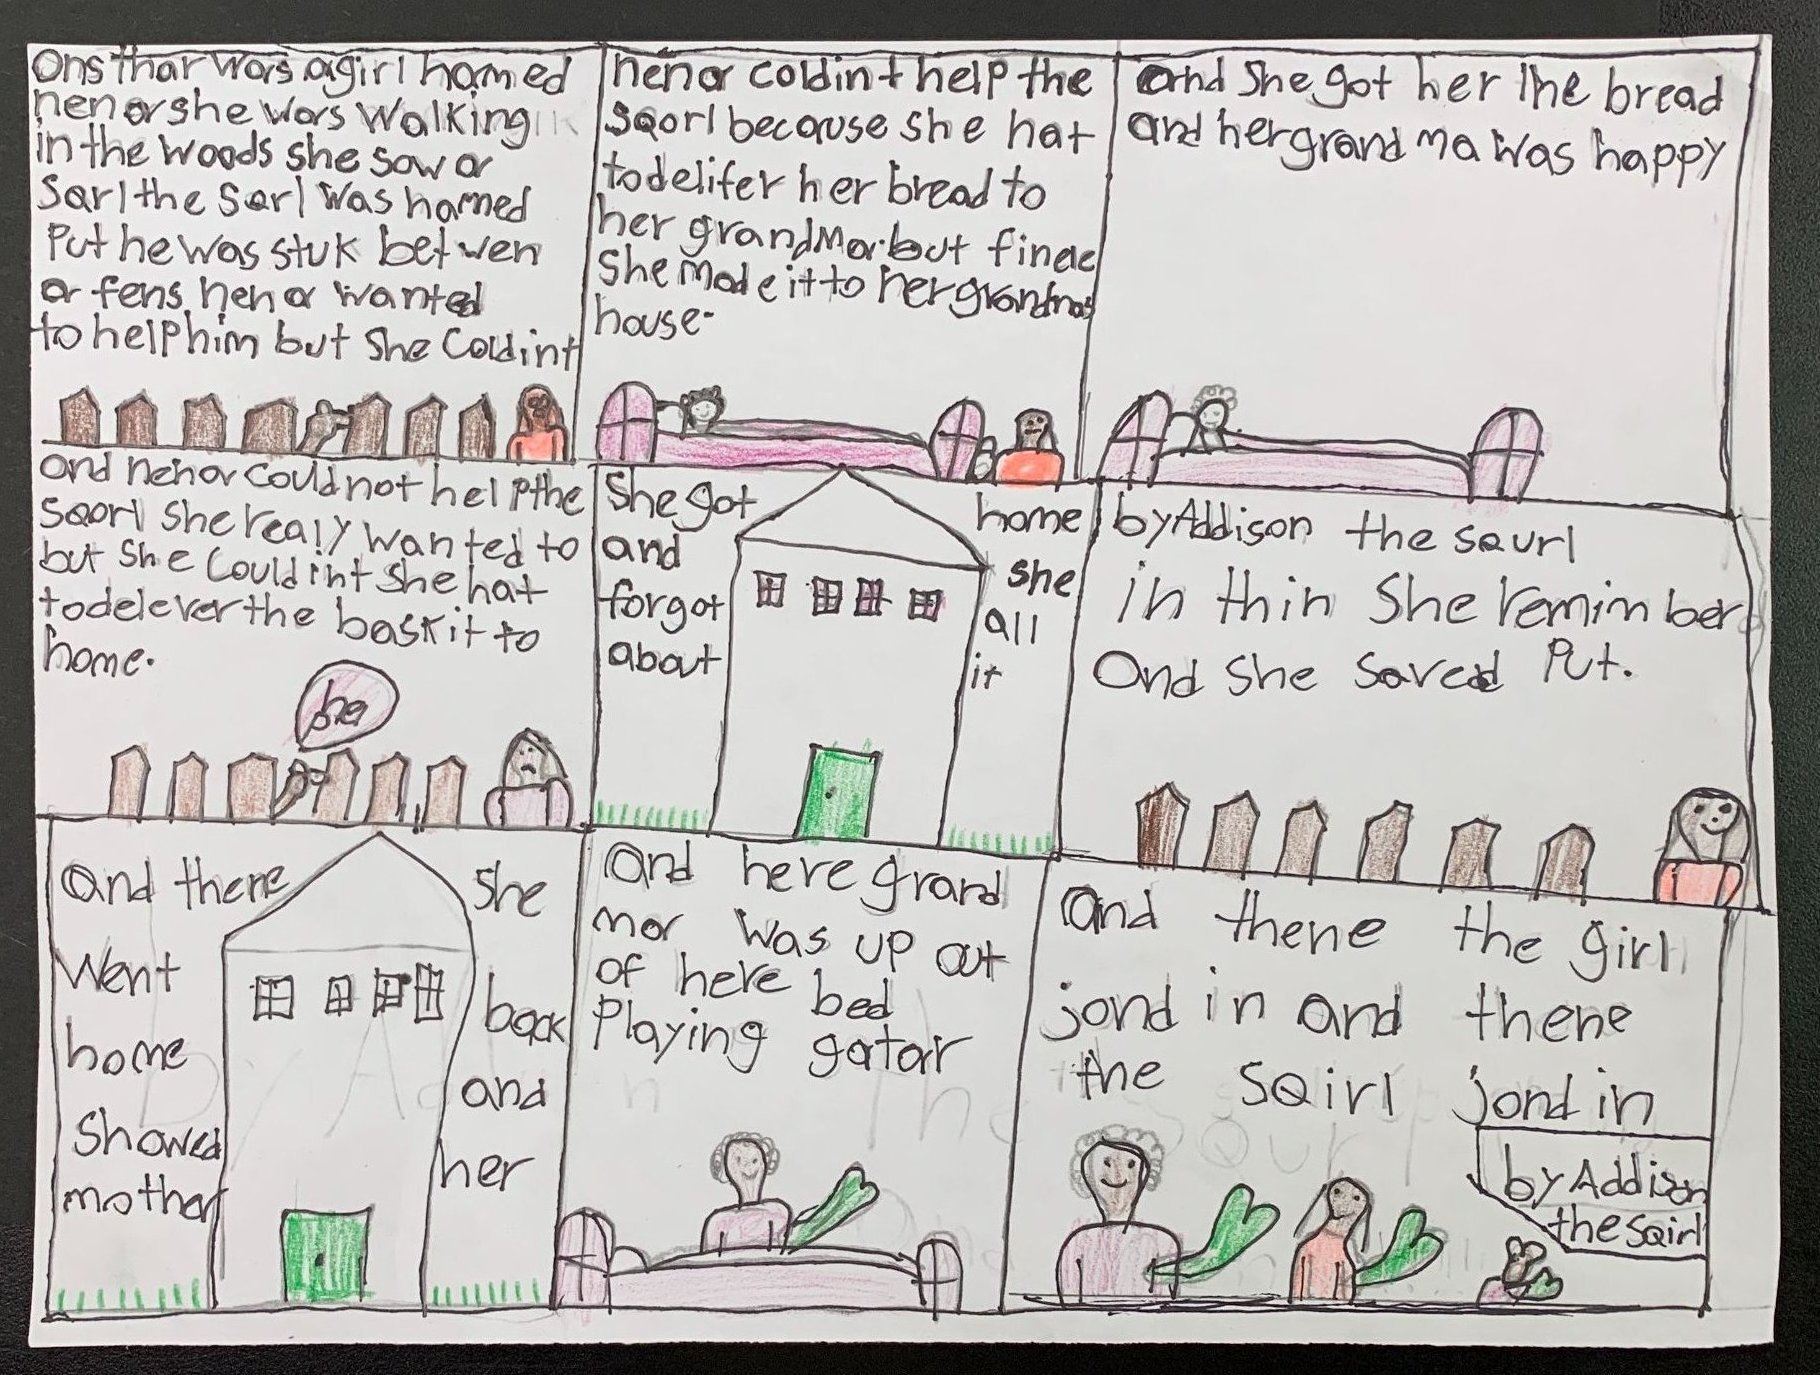 ons thar was a girl named
nena she was walking
in the woods she saw a
sarl the sarl was named
Put he was stuk betwen
a fens nena wanted
to help him but she coldint
nena coldint help the
sqorl because she hat
to delifer her bread to
her grandma. but finele
she made it to her grandmas
house.
and she got her the bread
and her grand ma was happy
and nena could not help the
sqorl she realy wanted to
but she couldint she hat
to delever the baskit to
home.
he
She got home
and she
forgot all
about it
by Addison the squrl
in thin She remimber
and she saved Put.
and there she
went back
home and
showed her
mother
and here grand
ma was up out
of here bed
Playing gatar
and thene the girl
jond in and thene
the sqirl jond in
by Addison
the sqirl